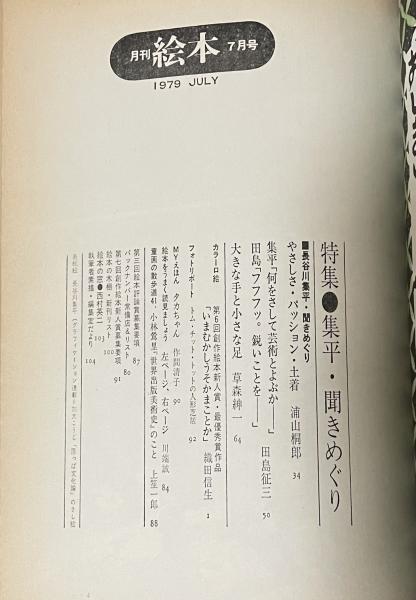 月刊 絵本 7月号
1979 JULY
特集●集平・聞きめぐり
■長谷川集平・聞きめぐり
やさしさ・パッション・土着 浦山桐郎 34
集平「何をさして芸術とよぶか 」
田島「フフフッ。鋭いことを― 」 田島征三 50
大きな手と小さな足 草森紳一 64
カラー口絵 第6回創作絵本新人賞・最優秀賞作品
「いまむかしうそかまことか」 織田信生 1
フォトリポート トム・チット・トットの人形芝居 92
MYえほん タカちゃん 作間清子 90
絵本をうまく読みましょう 左ページ、右ページ 川端誠 84
童画の散歩道41 小林鶯里『世界出版美術史』のこと 上笙一郎 88
第三回絵本評論賞募集要項 87
バックナンバー常備店&リスト 80
第七回創作絵本新人賞募集要項 91
絵本の木櫛・新刊リスト 100
絵本の窓●西村英二 103
執筆者素描・編集室だより 104
表紙絵 長谷川集平